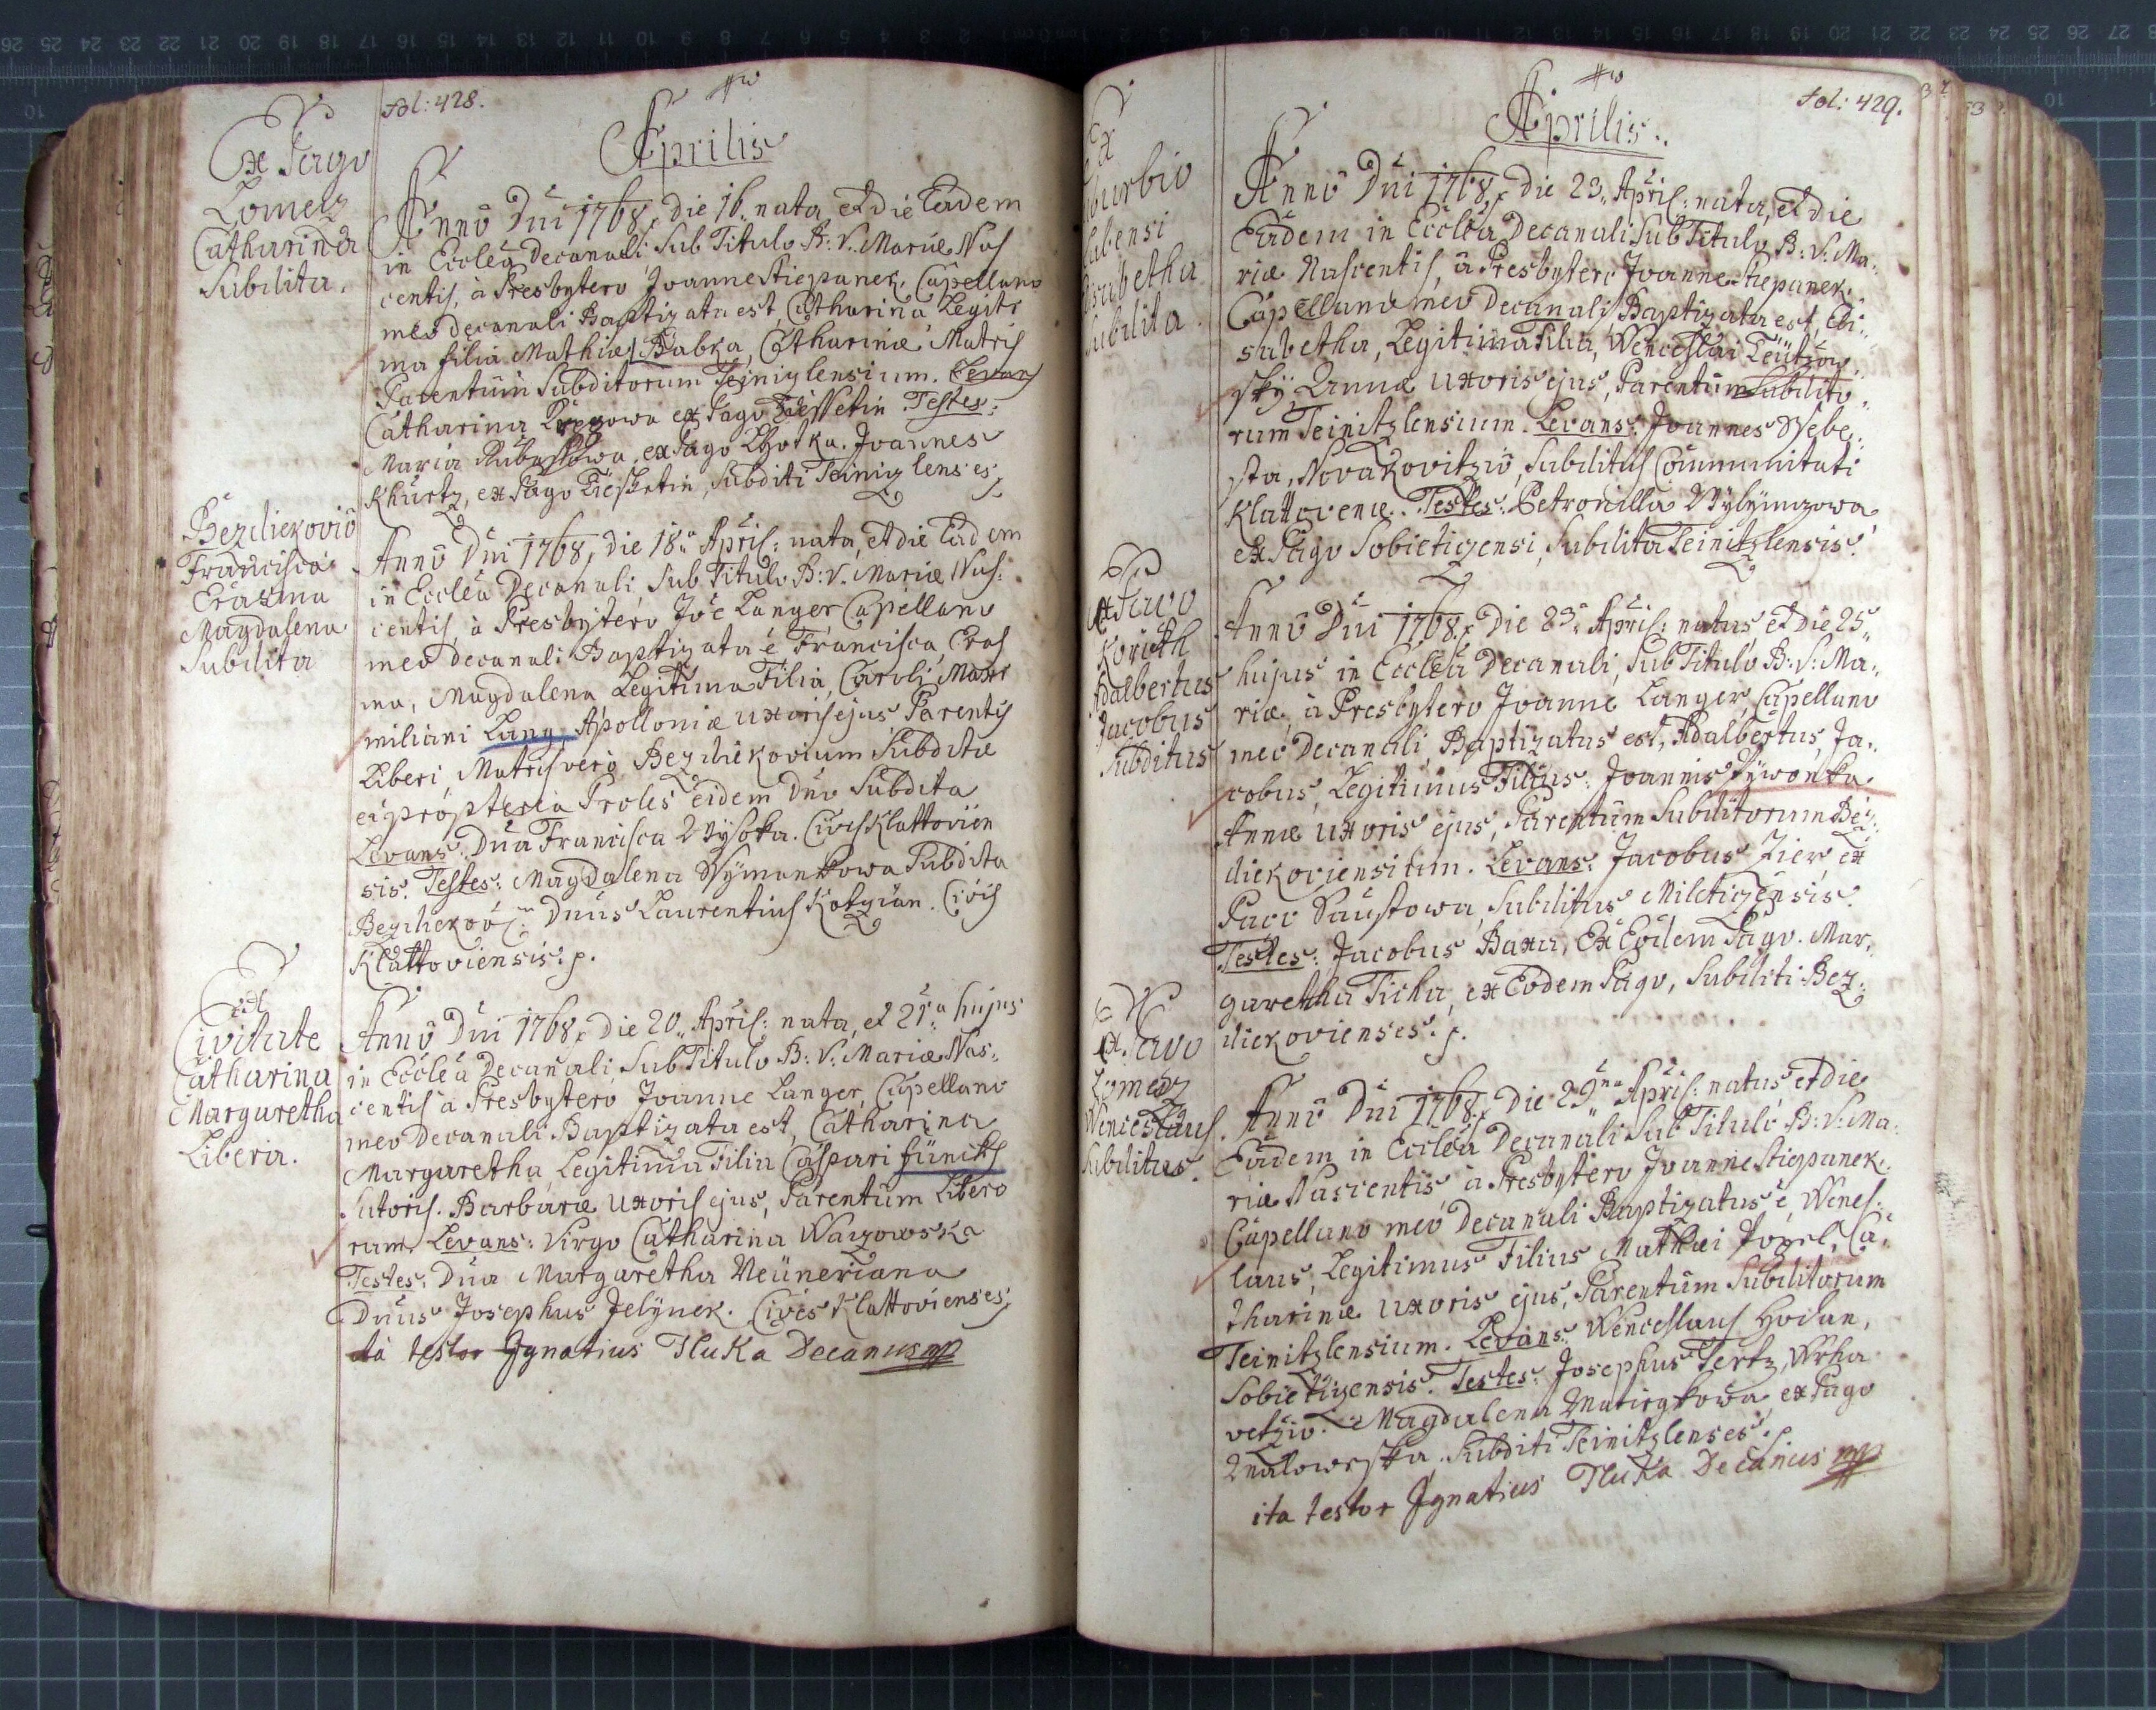 fol: 428.
Aprilis
Ex Pago
Lometz
Catharina
Subdita.
Anno Dni 1768, die 16 nata, et die Eadem
in Ecclea Decanali Sub Titulo B: V. Mariæ Nas
centis, à Presbytero Joanne Stiepanek, Capellano
meo decanali Baptizata est, Catharina Legiti
ma filia Mathiæ Babka, Catharinæ Matris
Parentum Subditorum Teinizlensium. Levans
Catharina ex Pago Testes:
Maria ex Pago Lhotka. Joannes
Khurtz, ex Pago Subditi Teinizlenses,
Bezdiekovio
Francisca
Erasma
Magdalena
Subdita
Anno Dni 1768, die 18a Apris: nata, et die Eadem
in Ecclea Decanali, Sub Titulo B: V. Mariæ Nas:
centis, à Presbytero Joe Langer Capellano
meo decanali Baptizata e Francisca, Eras
ma, Magdalena Legitima Filia, Caroli, Maxi
miliani Lang, Apolloniæ uxoris ejus Parentis
Liberi, Matris vero Bezdiekovium Subditæ
eapropterea Proles eidem Dno Subdita
Levans: Dna Francisca Wysoka. Civis Klattovien
sis. Testes: Magdalena Symankowa Subdita
Dnus Laurentius Kotzian. Civis
Klattoviensis: p.
Ex
Civitate
Catharina
Margaretha
Libera.
Anno Dni 1768, Die 20 Apris: nata, et 21a hujus
in Ecclea Decanali, Sub Titulo B: V. Mariæ Nas:
centis à Presbytero Joanne Langer, Capellano
meo Decanali Baptizata est, Catharina
Margaretha, Legitima Filia Caspari Fünicks
Sutoris. Barbaræ uxoris ejus, Parentum Libero
rum. Levans: Virgo Catharina Wazowska
Testes: Dna Margaretha Neüneriana
Dnus Josephus Jelynek. Cives Klattovienses,
ita testor Ignatius Tluka Decanus mp
fol: 429.
Aprilis.
Ex
Subetha
Subdita.
Anno Dni 1768, Die 23 Apris: nata, et die
Eadem in Ecclea Decanali Sub Titulo B: V: Ma:
riæ Nascentis, à Presbytero Joanne Stiepanek.
Capellano meo Decanali, Baptizata est, Eli:
sabetha, Legitima Filia, Wenceslai
sky, Annæ uxoris ejus, Parentum Subdito:
rum Teinitzlensium. Levans: Joannes Webe:
sta, Novakovitzio, Subditus Communitati
Klattovenæ. Testes: Petronilla
ex Pago Sobietizensi, Subdita Teinitzlensis.
Ex Pago
Korith
Adalbertus
Jacobus
Subditus
Anno Dni 1768. Die 23a Apris: natus, et Die 25
hujus in Ecclea Decanali, Sub Titulo B: V: Ma:
riæ, à Presbytero Joanne Langer, Capellano
meo Decanali, Baptizatus est, Adalbertus, Ja:
cobus, Legitimus Filius: Joannis Zywonka
Annæ uxoris ejus, Parentum Subditorum Bez:
diekoviensium. Levans: Jacobus Jier, ex
Pago Saustowa, Subditus Miletizensis.
Testes: Jacobus Baxa, Ex Eodem Pago. Mar,
garetha Ticha, ex Eodem Pago, Subditi Bez:
diekovienses: p.
Ex Pago
Lometz
Wenceslaus
Subditus.
Anno Dni 1768. Die 29na Apris: natus et die
Eadem in Ecclea Decanali Sub Titulo B: V: Ma:
riæ Nascentis, à Presbytero Joanne Stiepanek.
Capellano meo Decanali Baptizatus e, Wences:
laus, Legitimus Filius Mathæi Popel, Ca:
tharinæ uxoris ejus, Parentum Subditorum
Teinitzlensium. Levans: Wenceslaus Hodan,
Sobietizensis. Testes: Josephus Tertz, Wrha
vetzio. Magdalena ex Pago
Subditi Teinitzlenses.
ita testor Ignatius Tluka Decanus mp